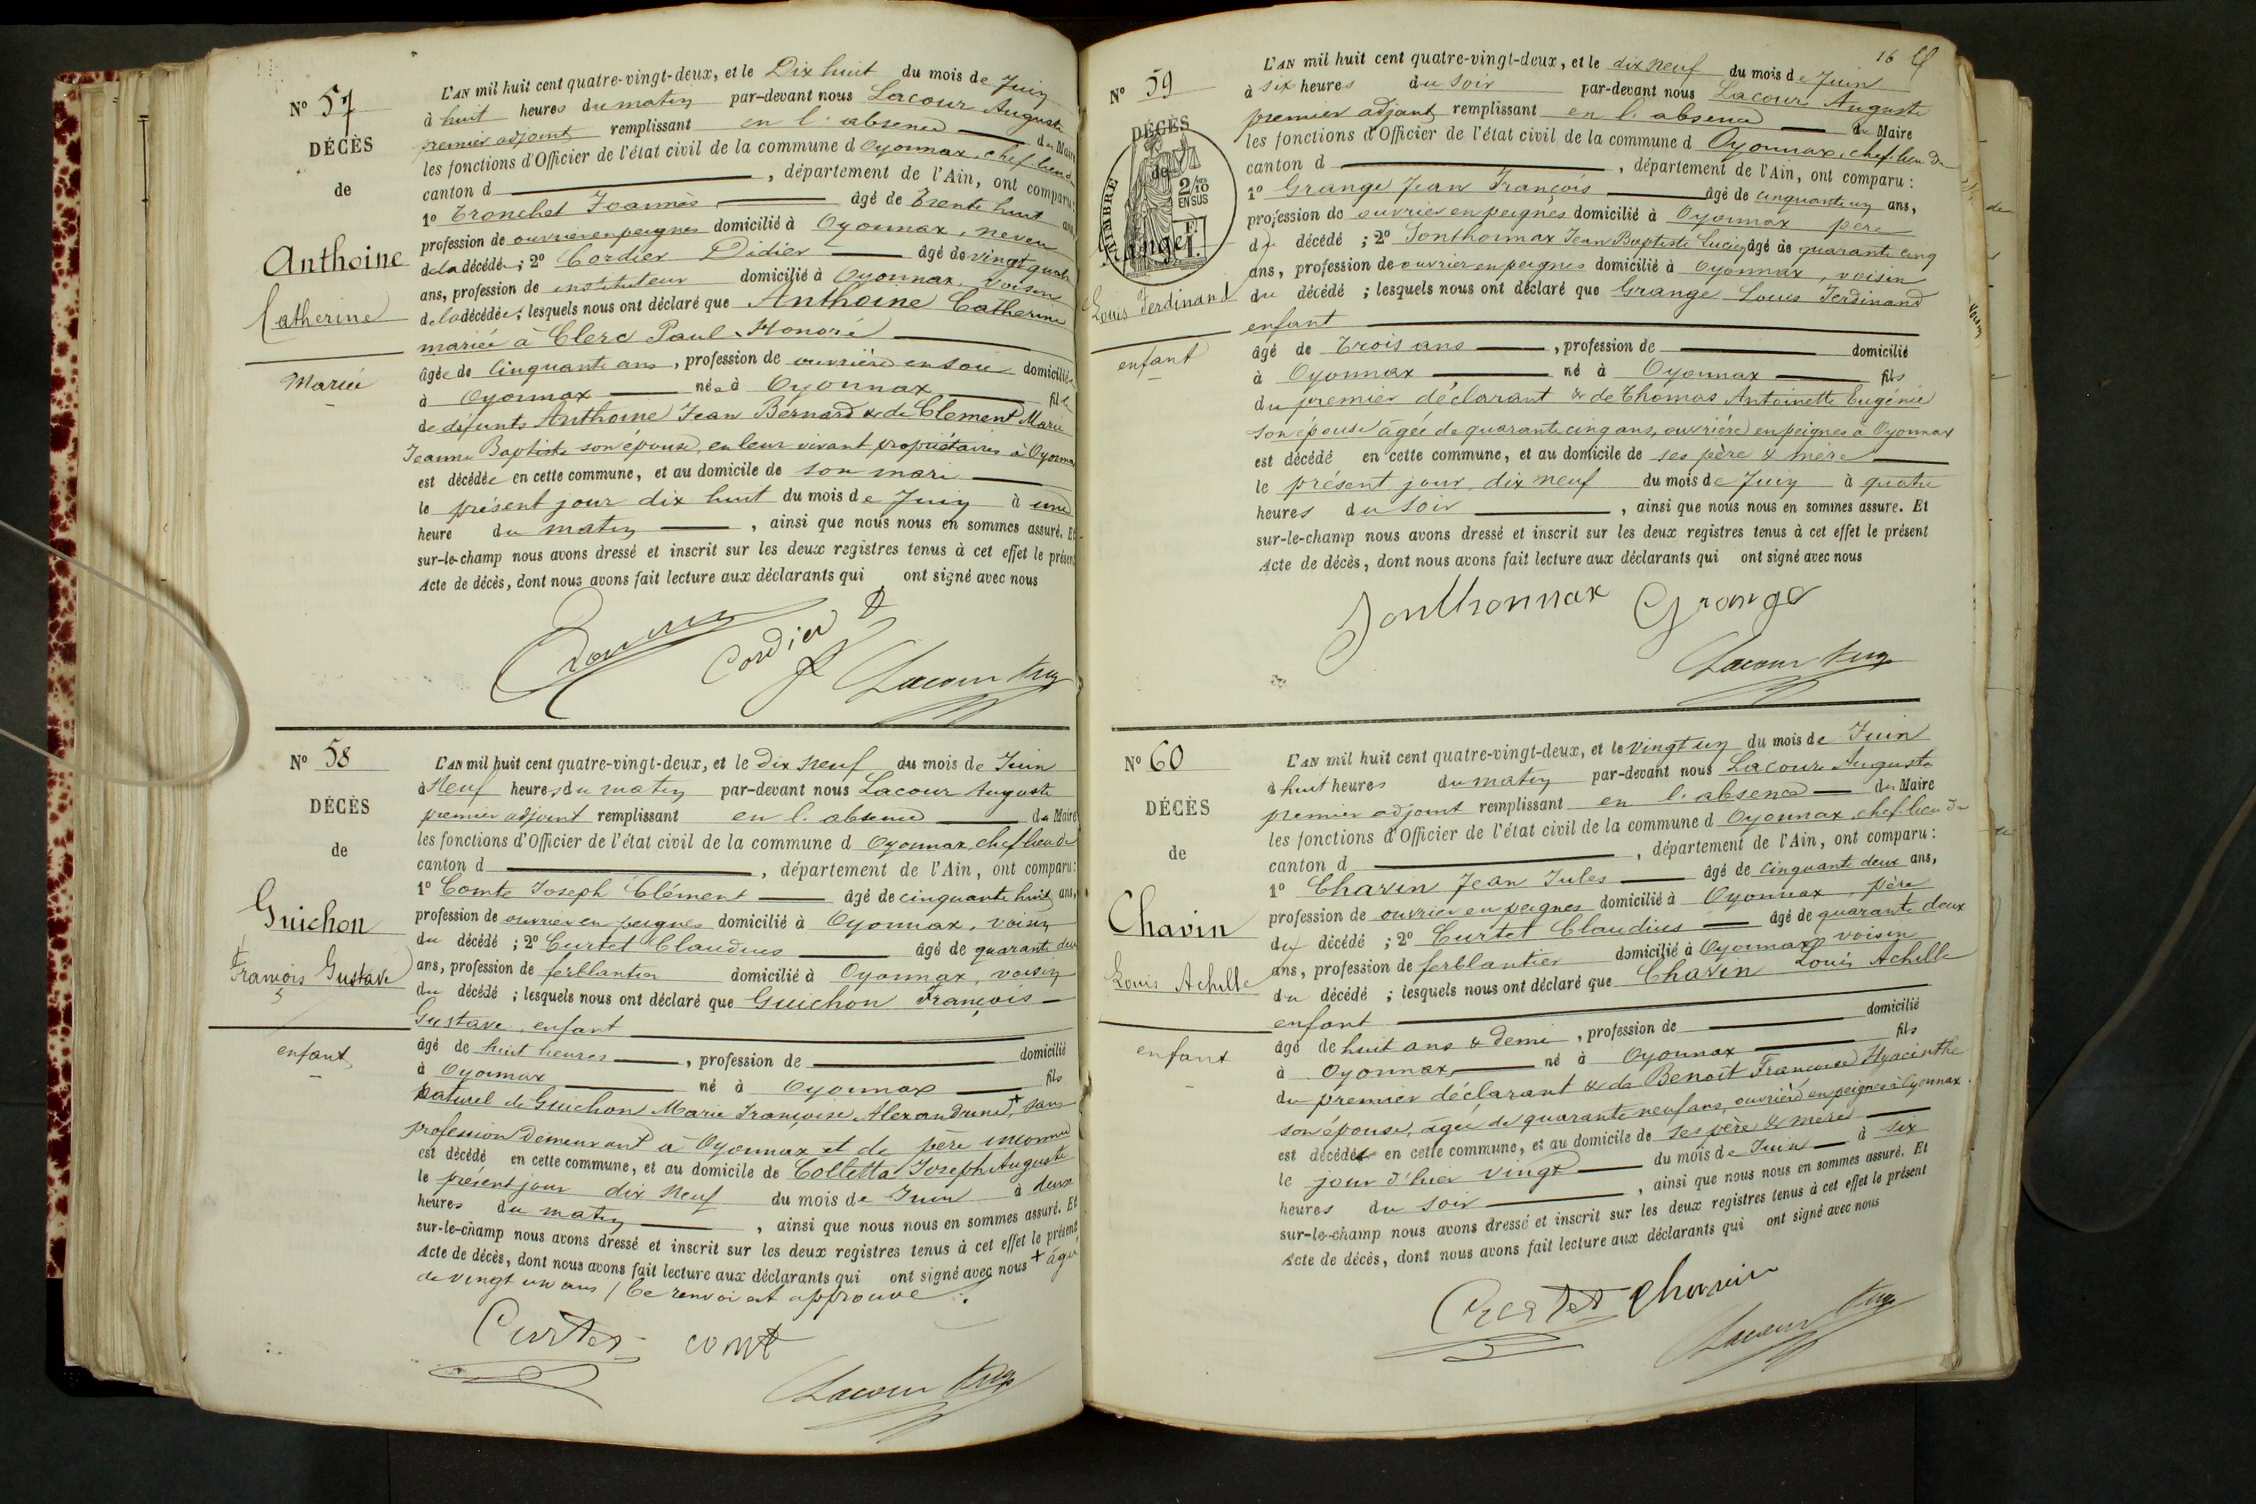 N° 57
DÉCÈS
de
Anthoine
Catherine
Mariée
L'AN mil huit cent quatre-vingt-deux, et le Dix huit du mois de Juin
à huit heures du matin par-devant nous Lacour Auguste
premier adjoint remplissant en l'absence du Maire
les fonctions d'Officier de l'état civil de la commune d Oyonnax, chef lieu de
canton d , département de l'Ain, ont comparu:
1° Tronchet Joannès âgé de Trente huit ans
profession de ouvrier en peignes domicilié à Oyonnax, neveu
de la décédée; 2° Cordier Didier âgé de vingt quatre
ans, profession de instituteur domicilié à Oyonnax, voisin
de la décédée; lesquels nous ont déclaré que Anthoine Catherine
mariée à Clerc Paul Honoré
âgée de Cinquante ans, profession de ouvrière en soie domiciliée
à Oyonnax née à Oyonnax fille
de défunts Anthoine Jean Bernard & de Clement Marie
Jeanne Baptiste son épouse, en leur vivant propriétaires à Oyonnax
est décédée en cette commune, et au domicile de son mari
le présent jour dix huit du mois de Juin à une
heure du matin , ainsi que nous nous en sommes assuré. Et
sur-le-champ nous avons dressé et inscrit sur les deux registres tenus à cet effet le présent
Acte de décès, dont nous avons fait lecture aux déclarants qui ont signé avec nous
Cordier D
Lacour Aug
N° 58
DÉCÈS
de
Guichon
François Gustave
enfant
L'AN mil huit cent quatre-vingt-deux, et le Dix neuf du mois de Juin
à Neuf heures du matin par-devant nous Lacour Auguste
premier adjoint remplissant en l'absence du Maire
les fonctions d'Officier de l'état civil de la commune d Oyonnax, chef lieu de
canton d , département de l'Ain, ont comparu:
1° Comte Joseph Clément âgé de cinquante huit ans,
profession de ouvrier en peignes domicilié à Oyonnax, voisin
du décédé ; 2° Curtet Claudius âgé de quarante deux
ans, profession de ferblantier domicilié à Oyonnax, voisin
du décédé ; lesquels nous ont déclaré que Guichon François
Gustave, enfant
âgé de huit heures , profession de domicilié
à Oyonnax né à Oyonnax fils
naturel de Guichon Marie Françoise Alexandrine + sans
profession demeurant à Oyonnax et de père inconnu
est décédé en cette commune, et au domicile de Colletta Joseph Auguste
le présent jour dix neuf du mois de Juin à deux
heures du matin , ainsi que nous nous en sommes assuré. Et
sur-le-champ nous avons dressé et inscrit sur les deux registres tenus à cet effet le présent
Acte de décès, dont nous avons fait lecture aux déclarants qui ont signé avec nous + âgée
de vingt un ans / Ce renvoi est approuvé
Curtet comte
Lacour Aug
16
N° 59
DÉCÈS
de
TIMBRE
2/10
EN SUS
F.
1.
Louis Ferdinand
enfant
L'AN mil huit cent quatre-vingt-deux, et le dix neuf du mois de Juin
à six heures du soir par-devant nous Lacour Auguste
premier adjoint remplissant en l'absence du Maire
les fonctions d'Officier de l'état civil de la commune d Oyonnax, chef lieu de
canton d , département de l'Ain, ont comparu :
1° Grange Jean François âgé de cinquante un ans,
profession de ouvrier en peignes domicilié à Oyonnax père
du décédé ; 2° Jonthonnax Jean Baptiste Lucien âgé de quarante cinq
ans, profession de ouvrier en peignes domicilié à Oyonnax, voisin
du décédé ; lesquels nous ont déclaré que Grange Louis Ferdinand
enfant
âgé de Trois ans , profession de domicilié
à Oyonnax né à Oyonnax fils
du premier déclarant & de Thomas Antoinette Eugénie
son épouse âgée de quarante cinq ans, ouvrière en peignes à Oyonnax
est décédé en cette commune, et au domicile de ses père & mère
le présent jour dix neuf du mois de Juin à quatre
heures du soir , ainsi que nous nous en sommes assuré. Et
sur-le-champ nous avons dressé et inscrit sur les deux registres tenus à cet effet le présent
Acte de décès, dont nous avons fait lecture aux déclarants qui ont signé avec nous
Jonthonnax Grange
Lacour Aug
N° 60
DÉCÈS
de
Chavin
Louis Achille
enfant
L'AN mil huit cent quatre-vingt-deux, et le vingt un du mois de Juin
à huit heures du matin par-devant nous Lacour Auguste
premier adjoint remplissant en l'absence du Maire
les fonctions d'Officier de l'état civil de la commune d Oyonnax, chef lieu de
canton d , département de l'Ain, ont comparu :
1° Chavin Jean Jules âgé de cinquante deux ans,
profession de ouvrier en peignes domicilié à Oyonnax, père
du décédé ; 2° Curtet Claudius âgé de quarante deux
ans, profession de ferblantier domicilié à Oyonnax voisin
du décédé ; lesquels nous ont déclaré que Chavin Louis Achille
enfant
âgé de huit ans & demi , profession de domicilié
à Oyonnax, né à Oyonnax fils
du premier déclarant & de Benoît Françoise Hyacinthe
son épouse, âgée de quarante neuf ans, ouvrière en peignes à Oyonnax
est décédé en cette commune, et au domicile de ses père & mère
le jour d'hier vingt du mois de Juin à six
heures du soir , ainsi que nous nous en sommes assuré. Et
sur-le-champ nous avons dressé et inscrit sur les deux registres tenus à cet effet le présent
Acte de décès, dont nous avons fait lecture aux déclarants qui ont signé avec nous
Curtet Chavin
Lacour Aug